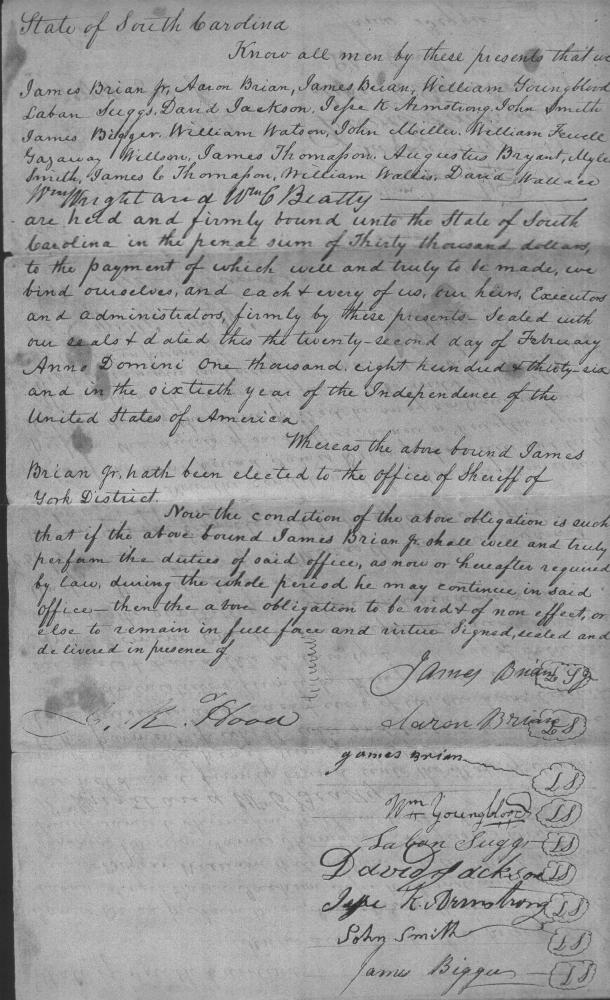 State of South Carolina
Know all men by these presents that we
James Brian Jr, Aaron Brian, James Brian, William Youngblood
Laban Suggs, David Jackson, Jesse K Armstrong, John Smith
James Bigger, William Watson, John Miller, William Fewell
Gazaway Willson, James Thomasson, Augustus Bryant, Myles
Smith, James C Thomason, William Wallis, David Wallace
Wm Wright and Wm C Beatty
are held and firmly bound unto the State of South
Carolina in the penal sum of Thirty thousand dollars,
to the payment of which well and truly to be made, we
bind ourselves, and each & every of us, our heirs, Executors
and administrators, firmly by these presents - Sealed with
our seals & dated this the twenty-second day of February
Anno Domini One thousand eight hundred & thirty-six
and in the sixtieth year of the Independence of the
United States of America
Whereas the above bound James
Brian Jr, hath been elected to the Office of Sheriff of
York District
Now the condition of the above obligation is such
that if the above bound James Brian Jr shall well and truly
perform the duties of said office, as now or hereafter required
by law, during the whole period he may continue in said
Office - then the above obligation to be void & of non effect, or
else to remain in full force and virtue Signed, sealed and
delivered in presence of
James Brian Jr LS
Hood
Aaron Brian LS
James Brian LS
Wm Youngblood LS
Laban Suggs LS
David Jackson LS
Jesse K. Armstrong LS
John Smith LS
James Bigger LS